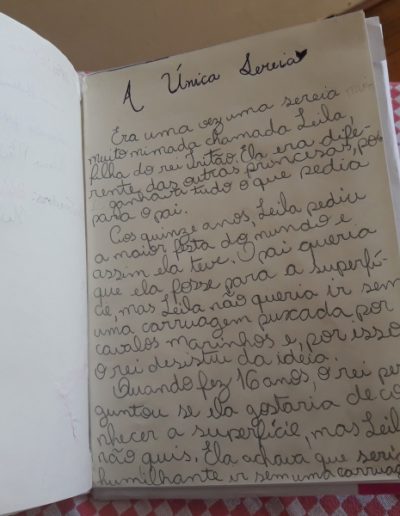 A Única Sereia
Era uma vez uma sereia
muito mimada chamada Leila,
filha do rei tritão. Ela era dife-
rente das outras princesas, pois
ganhava tudo o que pedia
para o pai.
Aos quinze anos, Leila pediu
a maior festa do mundo e
assim ela teve. O pai queria
que ela fosse para a superfí-
cie, mas Leila não queria ir sem
uma carruagem puxada por
cavalos marinhos e, por isso
o rei desistiu da ideia.
Quando fez 16 anos, o rei per
guntou se ela gostaria de co
nhecer a superfície, mas Leil
não quis. Ela achava que seri
humilhante ir sem uma carruag